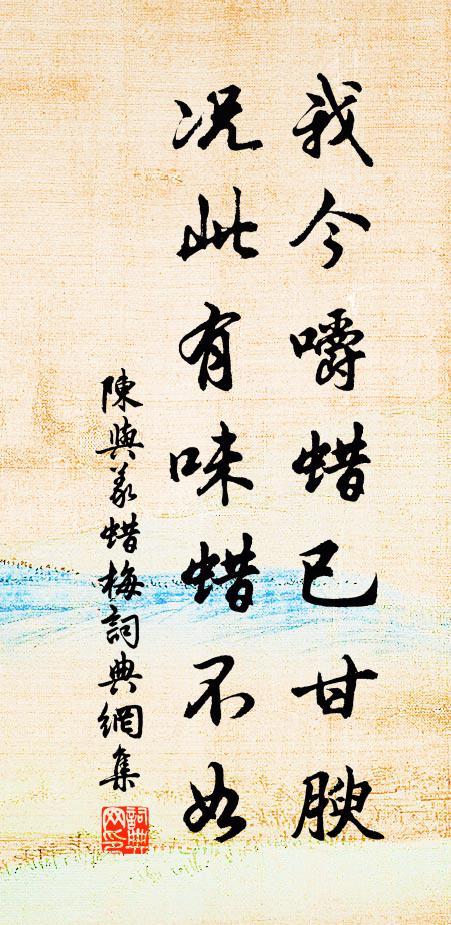 我今嚼蜡已甘腴
况此有味蜡不如
陳與義蜡梅詞典網集
詞典网印